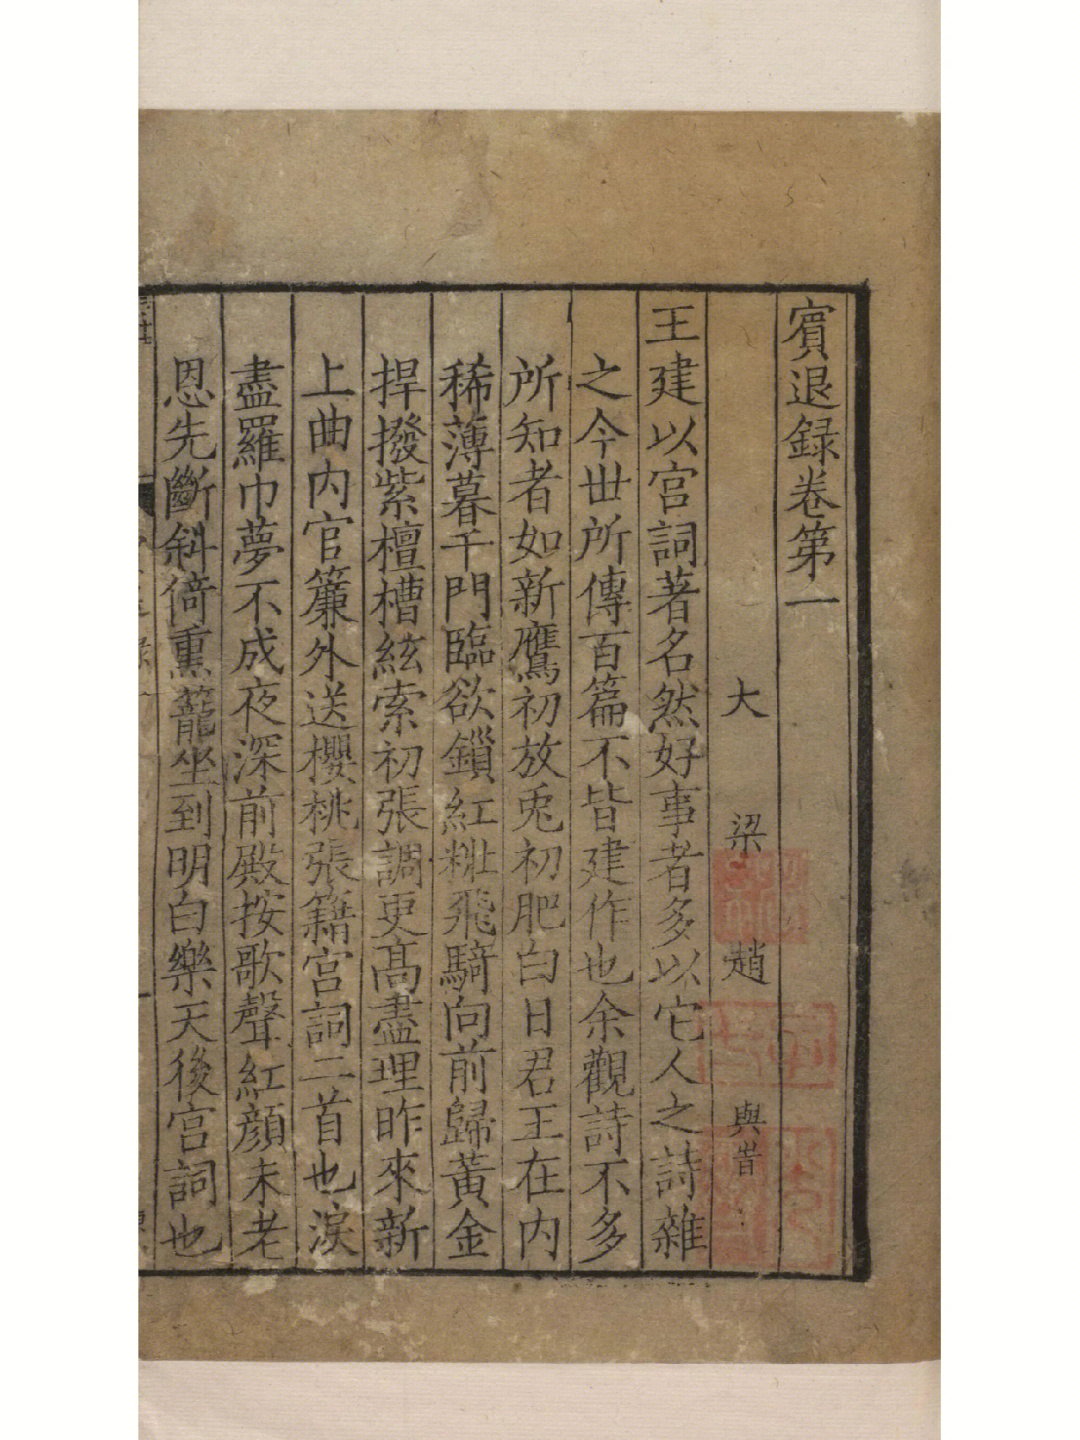 賓退録卷第一
大 梁 趙 與 旹
王建以宫詞著名然好事者多以它人之詩雜
之今丗所傳百篇不皆建作也余觀詩不多
所知者如新鷹初放兎初肥白日君王在内
稀薄暮千門臨欲鏁紅粧飛騎向前歸黄金
捍撥紫檀槽絃索初張調更髙盡理昨來新
上曲内官簾外送櫻桃張籍宫詞二首也淚
盡羅巾夢不成夜深前殿按歌聲紅顔未老
恩先斷斜倚熏籠坐到明白樂天後宫詞也